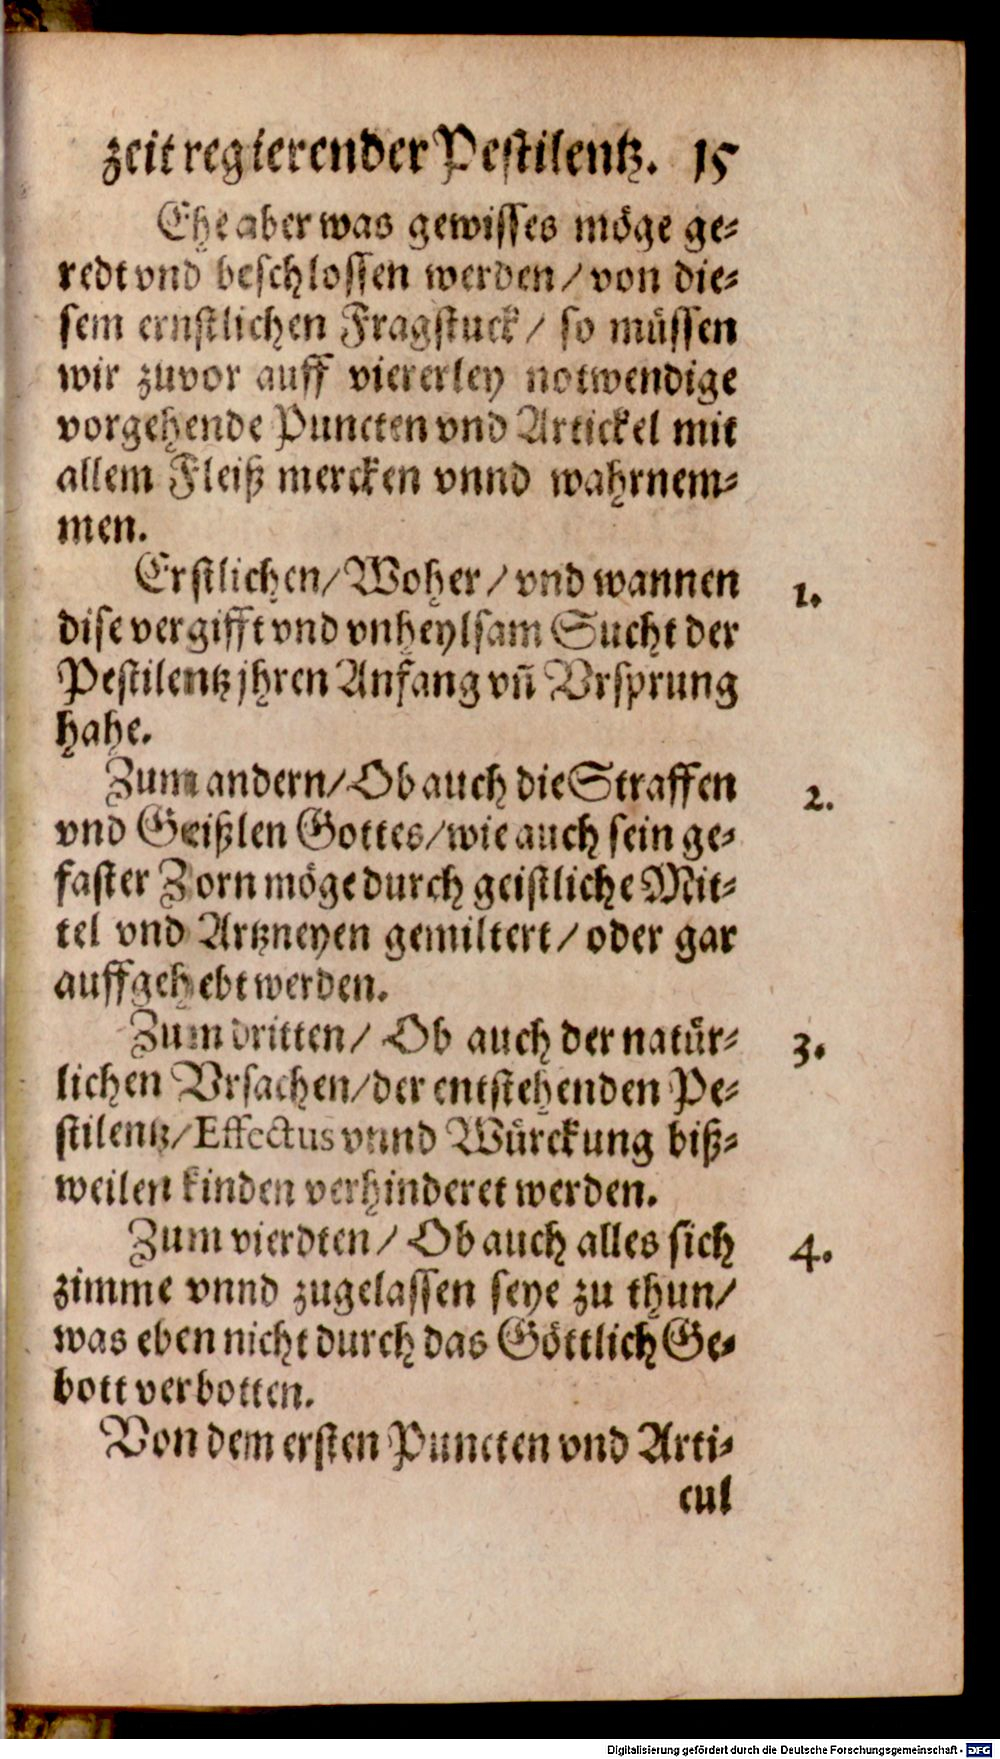 zeit regierender Pestilentz. 15
Ehe aber was gewisses möge ge-
redt vnd beschlossen werden / von die-
sem ernstlichen Fragstuck / so müssen
wir zuvor auff viererley notwendige
vorgehende Puncten vnd Artickel mit
allem Fleiß mercken vnnd wahrnem-
men.
Erstlichen / Woher / vnd wannen 1.
dise vergifft vnd vnheylsam Sucht der
Pestilentz jhren Anfang vñ Vrsprung
hahe.
Zum andern / Ob auch die Straffen 2.
vnd Geißlen Gottes / wie auch sein ge-
faster Zorn möge durch geistliche Mit-
tel vnd Artzneyen gemiltert / oder gar
auffgehebt werden.
Zum dritten / Ob auch der natür- 3.
lichen Vrsachen / der entstehenden Pe-
stilentz / Effectus vnnd Würckung biß-
weilen kinden verhinderet werden.
Zum vierdten / Ob auch alles sich 4.
zimme vnnd zugelassen seye zu thun /
was eben nicht durch das Göttlich Ge-
bott verbotten.
Von dem ersten Puncten vnd Arti-
cul
Digitalisierung gefördert durch die Deutsche Forschungsgemeinschaft - DFG